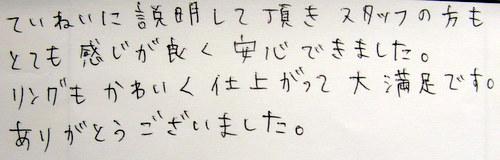 ていねいに説明して頂きスタッフの方も
とても感じが良く安心できました。
リングもかわいく仕上がって大満足です。
ありがとうございました。